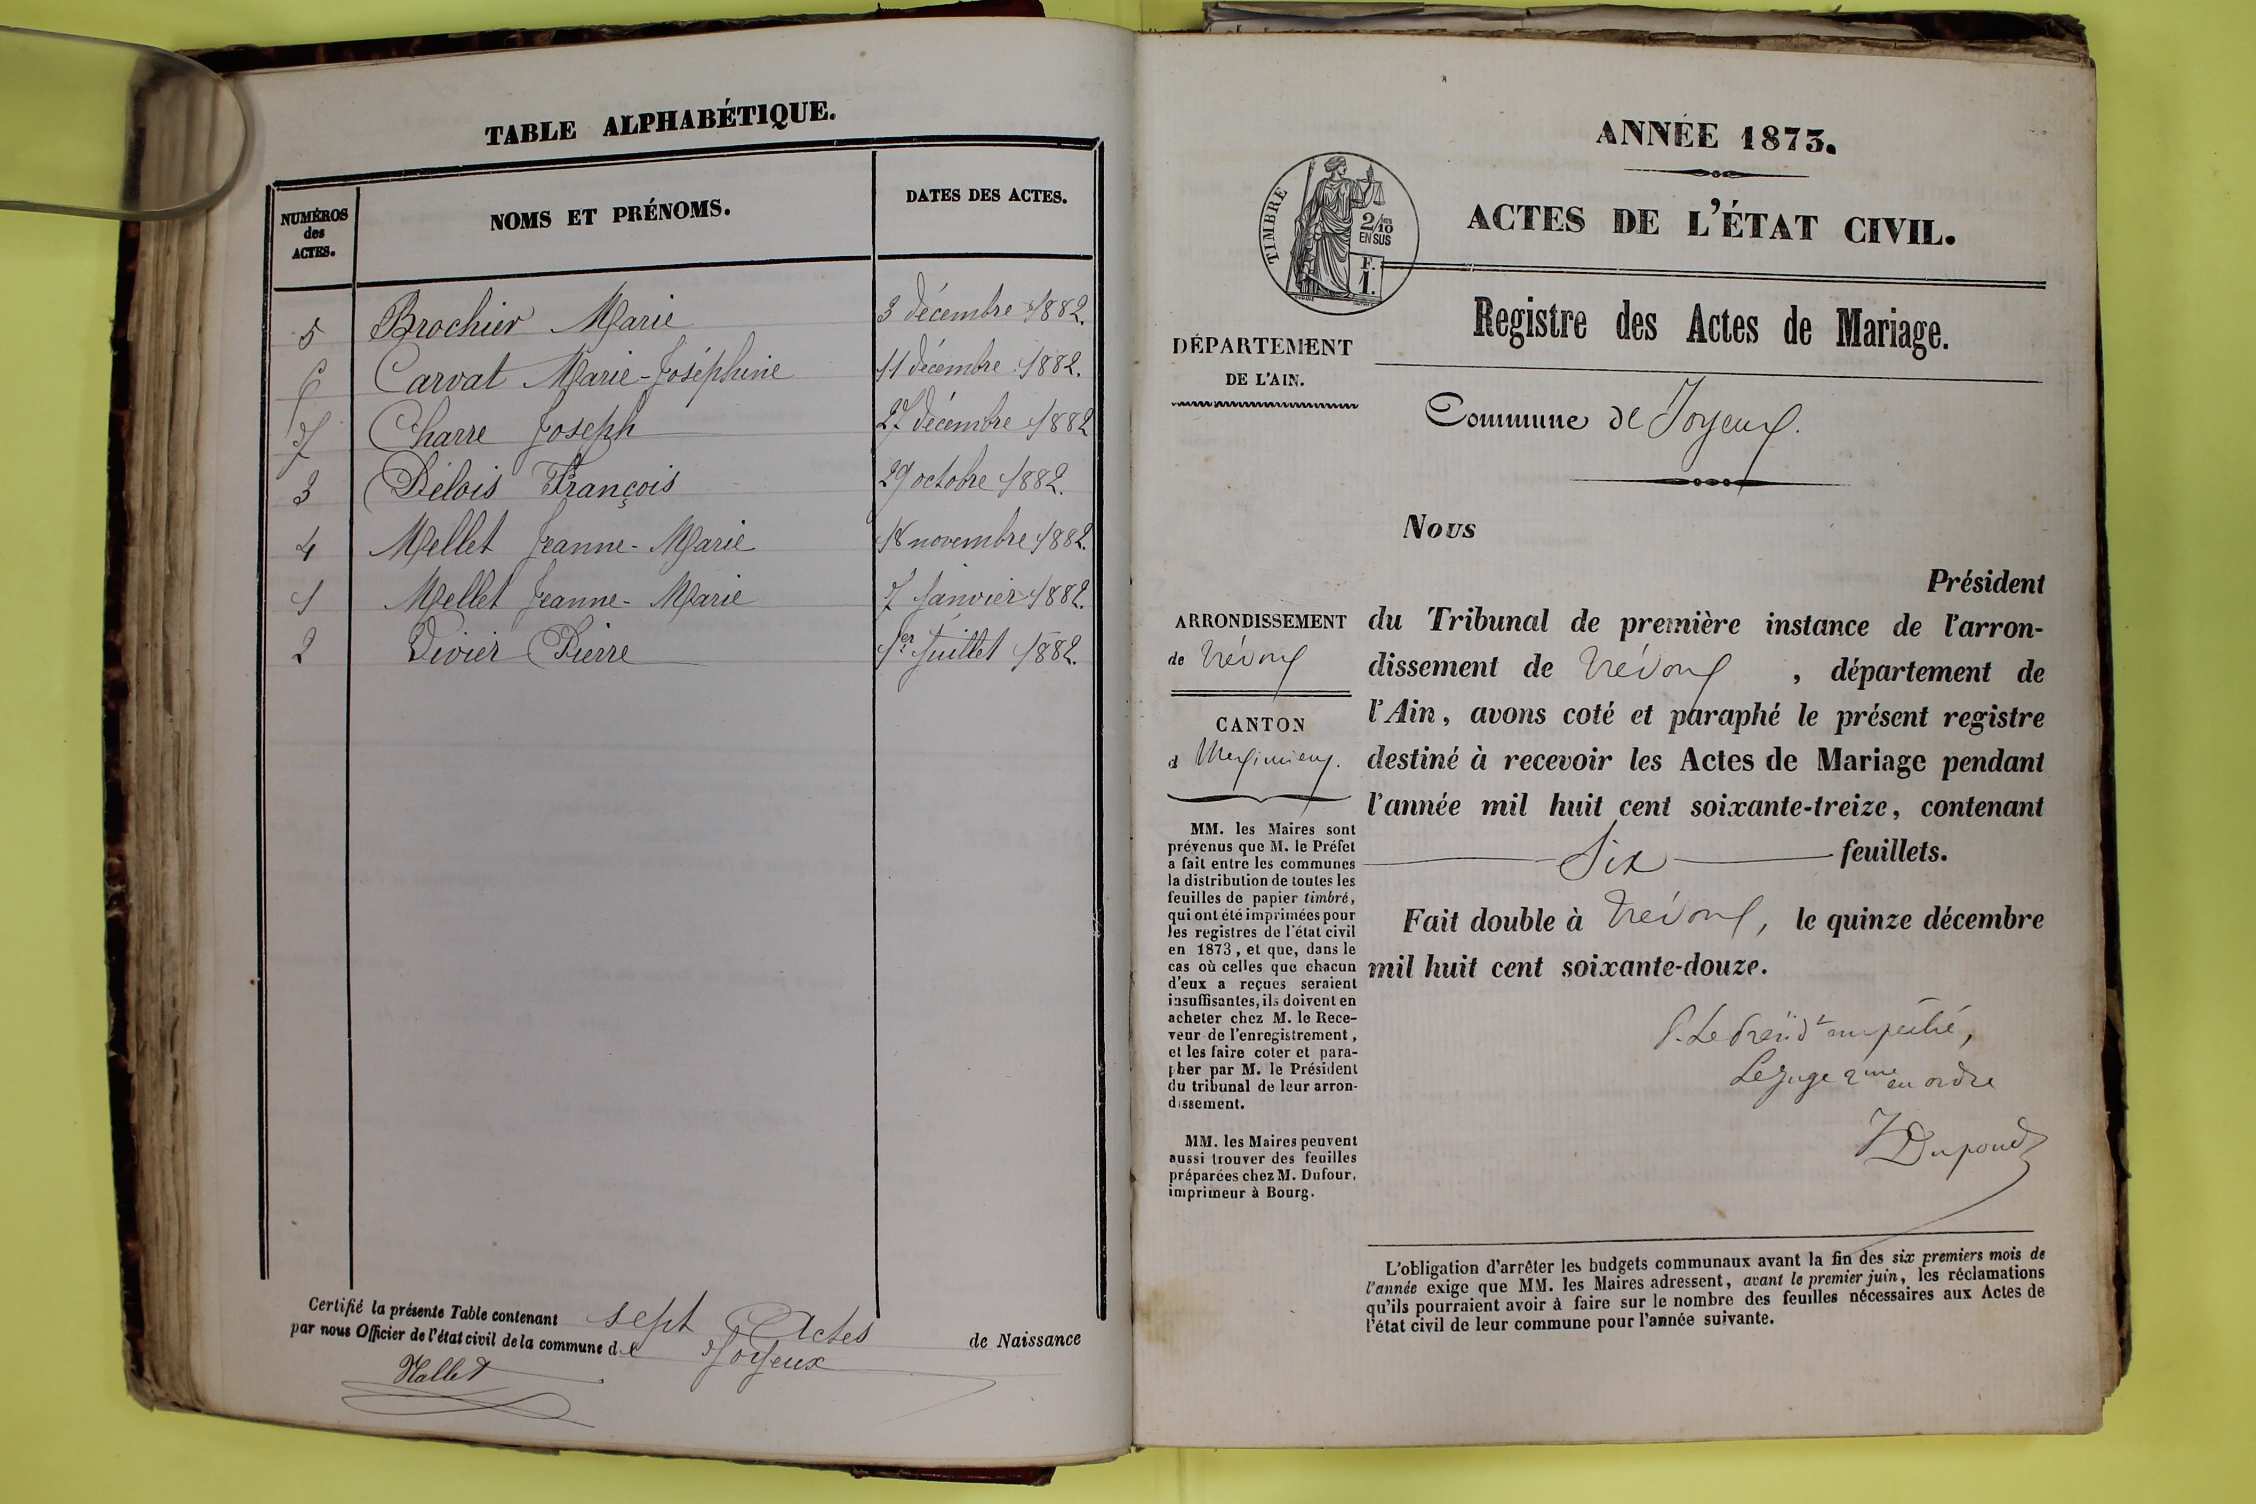 TABLE ALPHABÉTIQUE.
NUMÉROS
des
ACTES.
NOMS ET PRÉNOMS.
DATES DES ACTES.
5 Brochier Marie 3 décembre 1882.
6 Carvat Marie-Joséphine 11 décembre 1882.
7 Charre Joseph 27 décembre 1882
3 Délois François 29 octobre 1882.
4 Mellet Jeanne-Marie 18 novembre 1882.
1 Mellet Jeanne-Marie 7 Janvier 1882.
2 Vivier Pierre 1er Juillet 1882.
Certifié la présente Table contenant sept Actes de Naissance
par nous Officier de l'état civil de la commune de Joyeux
Mallet
ANNÉE 1873.
TIMBRE
2/10
EN SUS
F.
1.
ACTES DE L'ÉTAT CIVIL.
Registre des Actes de Mariage.
DÉPARTEMENT
DE L'AIN.
Commune de Joyeux.
Nous
Président
ARRONDISSEMENT
de Trévoux
CANTON
d Meximieux.
du Tribunal de première instance de l'arron-
dissement de Trévoux, département de
l'Ain, avons coté et paraphé le présent registre
destiné à recevoir les Actes de Mariage pendant
l'année mil huit cent soixante-treize, contenant
Six feuillets.
Fait double à Trévoux, le quinze décembre
mil huit cent soixante-douze.
P. Le Présidt empêché,
Le Juge 2me en ordre
Dupond
MM. les Maires sont
prévenus que M. le Préfet
a fait entre les communes
la distribution de toutes les
feuilles de papier timbré,
qui ont été imprimées pour
les registres de l'état civil
en 1873, et que, dans le
cas où celles que chacun
d'eux a reçues seraient
insuffisantes, ils doivent en
acheter chez M. le Rece-
veur de l'enregistrement,
et les faire coter et para-
pher par M. le Président
du tribunal de leur arron-
dissement.
MM. les Maires peuvent
aussi trouver des feuilles
préparées chez M. Dufour,
imprimeur à Bourg.
L'obligation d'arrêter les budgets communaux avant la fin des six premiers mois de
l'année exige que MM. les Maires adressent, avant le premier juin, les réclamations
qu'ils pourraient avoir à faire sur le nombre des feuilles nécessaires aux Actes de
l'état civil de leur commune pour l'année suivante.